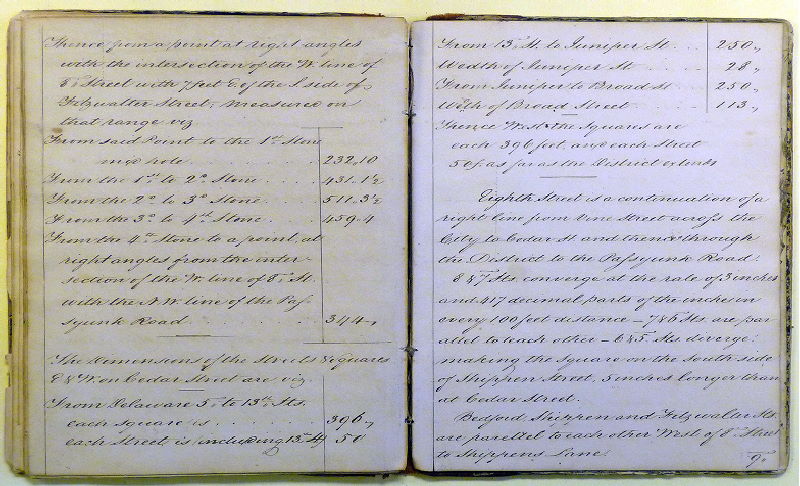 Thence from a point at right angles
with the intersection of the W. line of
8th Street with 7 feet E. of the S side of
Fitzwalter Street, measured on
that range viz
From said Point to the 1st Stone
inxo hole . . . . . . . . 232,10
From the 1st to 2d Stone . . . . 431.1½
From the 2d to 3d Stone . . . . 511.3½
From the 3d to 4th Stone . . . . 459.4
From the 4th Stone to a point, at
right angles from the inter-
section of the W. line of 8th St.
with the N.W. line of the Pas-
syunk Road . . . . . . . . 344 „
The dimensions of the Streets & Squares
E & W. on Cedar Street are viz.
From Delaware 5th to 13th Sts.
each square is . . . . . . 396 „
each Street is including 13th St 50
From 13th St. to Juniper St . . . 250 „
Width of Juniper St . . . . . 28 „
From Juniper to Broad St . . . 250 „
Wdth of Broad Street . . . . 113 „
Thence West the Squares are
each 396 feet, and each Street
50 f. as far as the District extends
Eighth Street is a continuation of a
right line from Vine Street across the
City to Cedar St. and thence through
the District to the Passyunk Road.
8 & 7th Sts. converge at the rate of 3 inches
and 417 decimal parts of the inches in
every 100 feet distance — 7 & 6th Sts. are par
allel to each other — 6 & 5th Sts. diverge.
making the Square on the South side
of Shippen Street, 5 inches longer than
at Cedar Street.
Bedford, Shippen and Fitzwalter Sts.
are parellel to each other West of 8th Street
to Shippens Lane.
9th